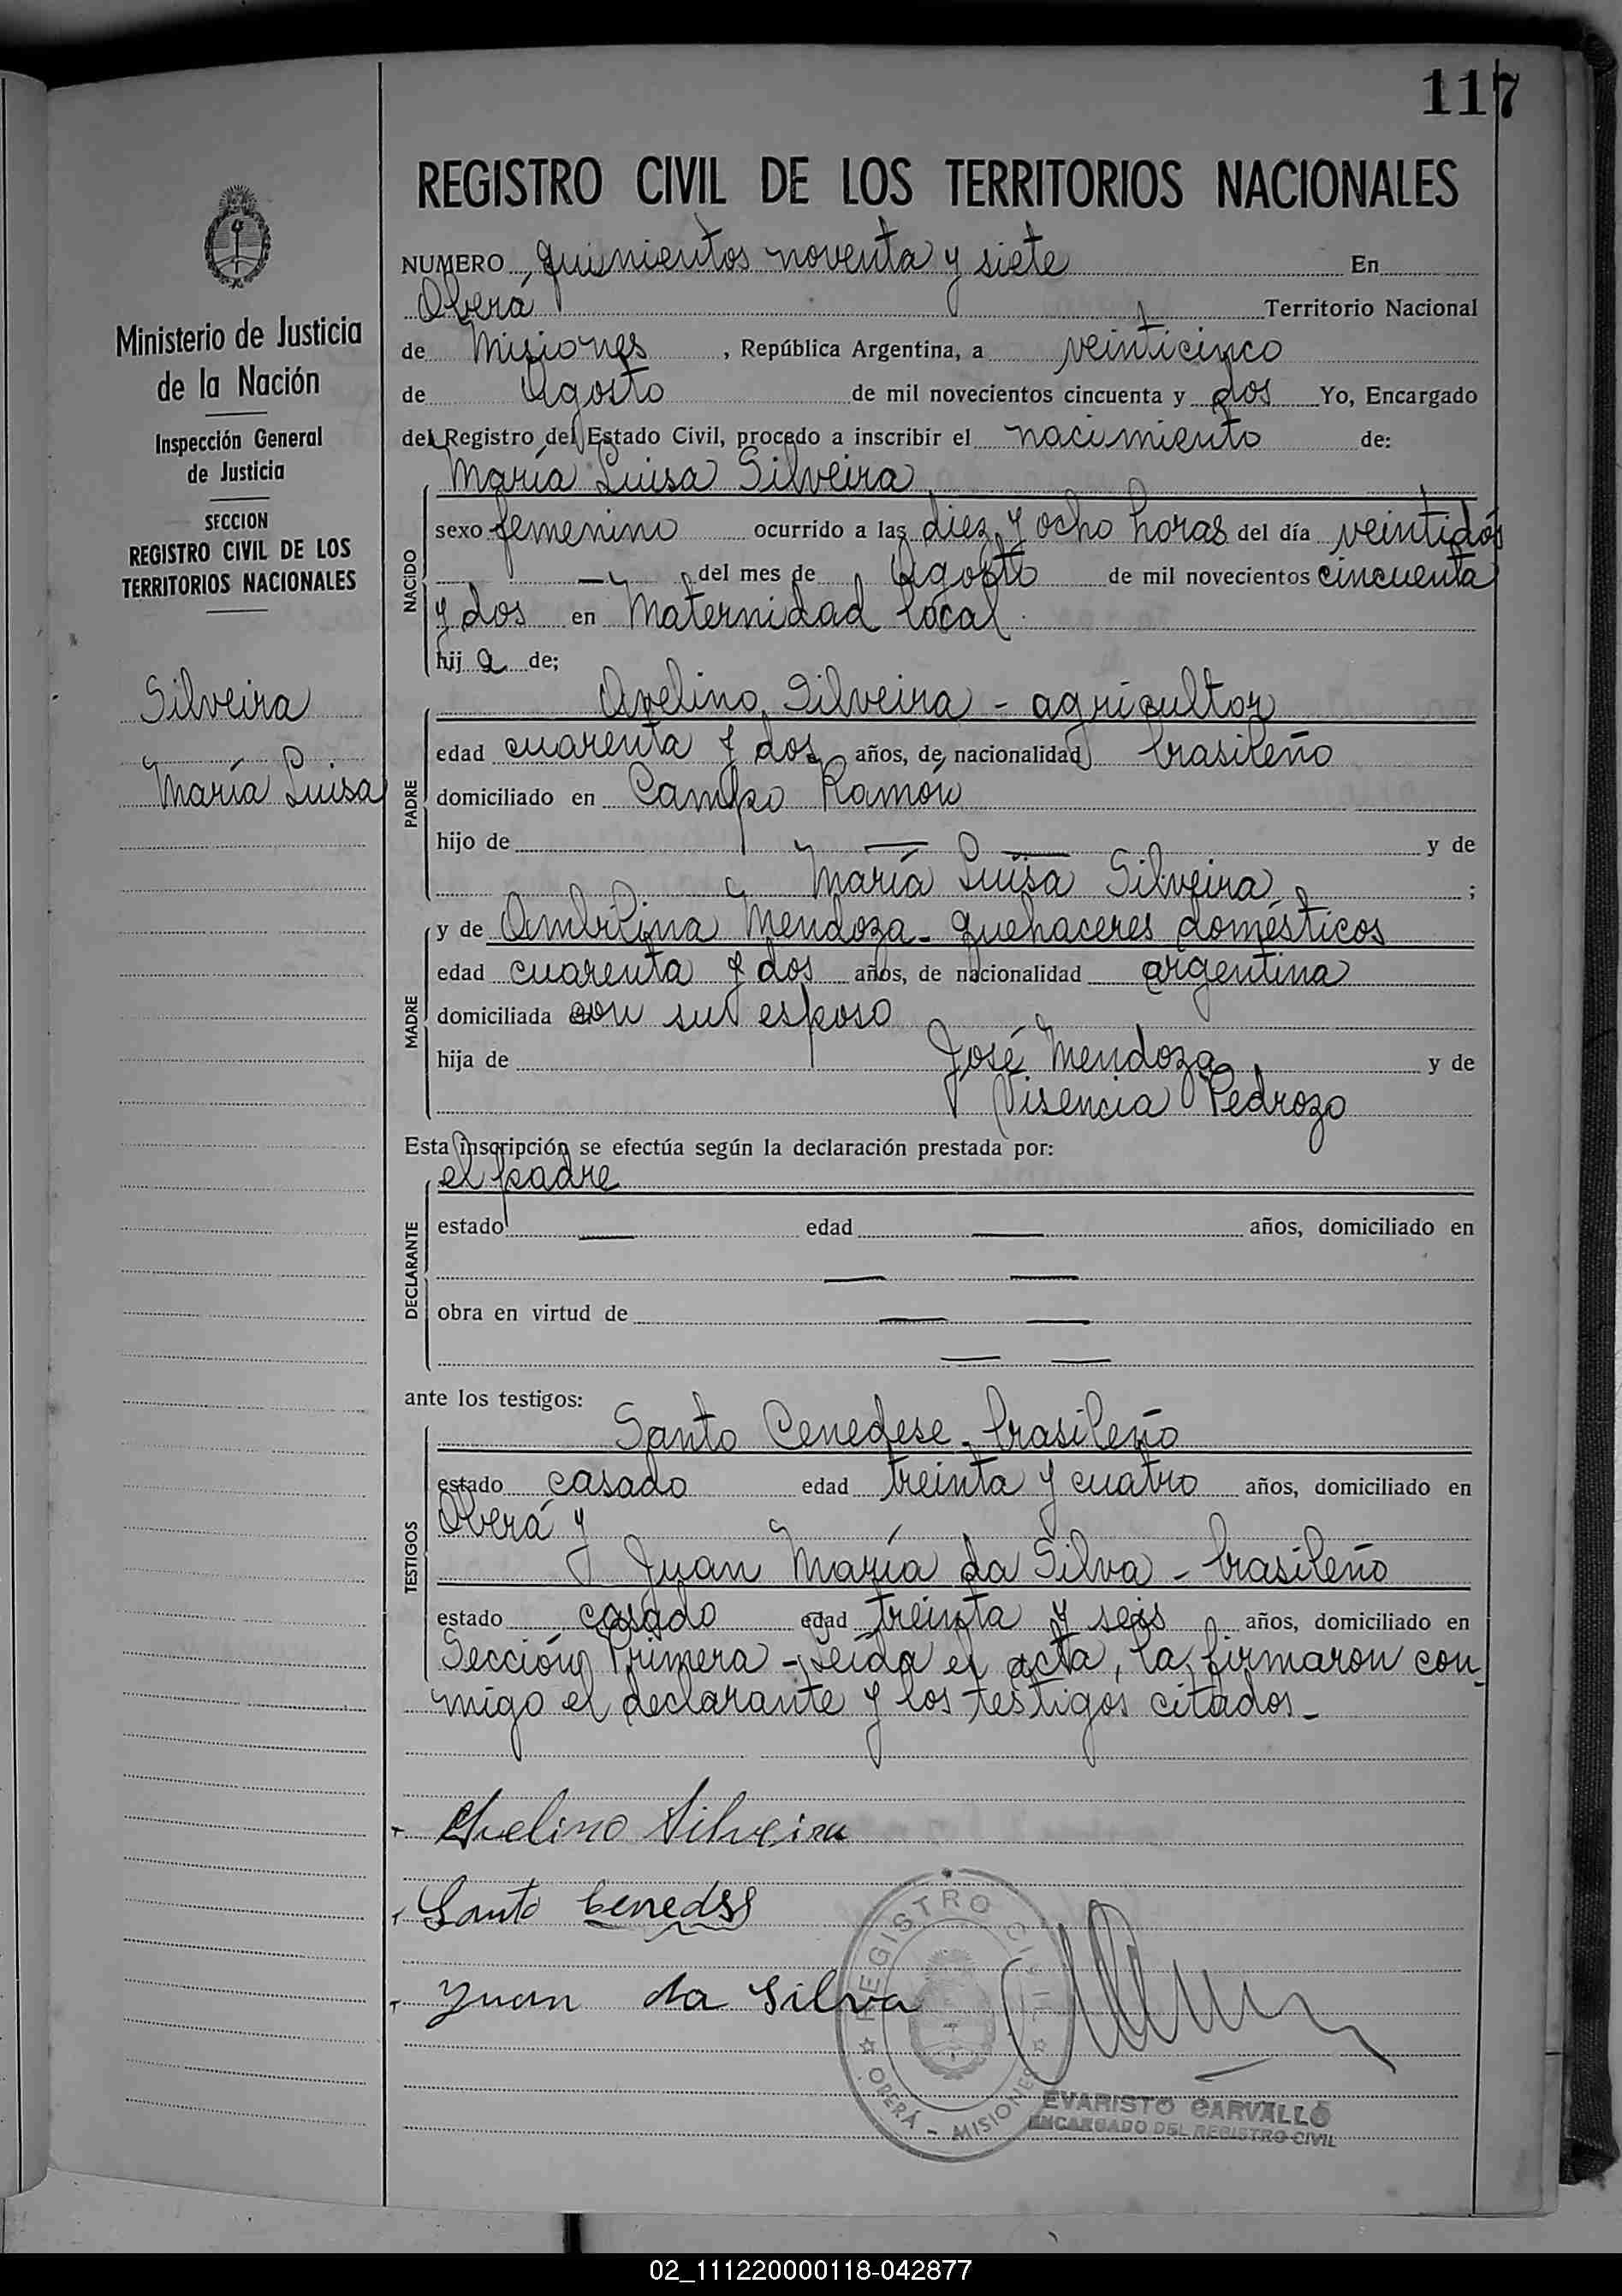 117
REGISTRO CIVIL DE LOS TERRITORIOS NACIONALES
Ministerio de Justicia
de la Nación
Inspección General
de Justicia
SECCION
REGISTRO CIVIL DE LOS
TERRITORIOS NACIONALES
Silveira
María Luisa
NUMERO quinientos noventa y siete En
Oberá Territorio Nacional
de Misiones, República Argentina, a veinticinco
de Agosto de mil novecientos cincuenta y dos Yo, Encargado
del Registro del Estado Civil, procedo a inscribir el nacimiento de:
NACIDO
María Luisa Silveira
sexo femenino ocurrido a las diez y ocho horas del día veintidós
— del mes de Agosto de mil novecientos cincuenta
y dos en Maternidad local
hija de;
PADRE
Avelino Silveira - agricultor
edad cuarenta y dos años, de nacionalidad brasileño
domiciliado en Campo Ramón
hijo de — — y de
María Luisa Silveira ;
MADRE
y de Ambilina Mendoza - quehaceres domésticos
edad cuarenta y dos años, de nacionalidad argentina
domiciliada con su esposo
hija de José Mendoza y de
Visencia Pedrozo
Esta inscripción se efectúa según la declaración prestada por:
DECLARANTE
el padre
estado — edad — años, domiciliado en
— —
obra en virtud de — —
— —
ante los testigos:
TESTIGOS
Santo Cenedese - brasileño
estado casado edad treinta y cuatro años, domiciliado en
Oberá y
Juan María da Silva - brasileño
estado casado edad treinta y seis años, domiciliado en
Sección Primera - Leída el acta, la firmaron con-
migo el declarante y los testigos citados -
Avelino Silveira
Santo Cenedss
Juan da Silva
REGISTRO CIVIL
OBERÁ - MISIONES
EVARISTO CARVALLO
ENCARGADO DEL REGISTRO CIVIL
02_111220000118-042877